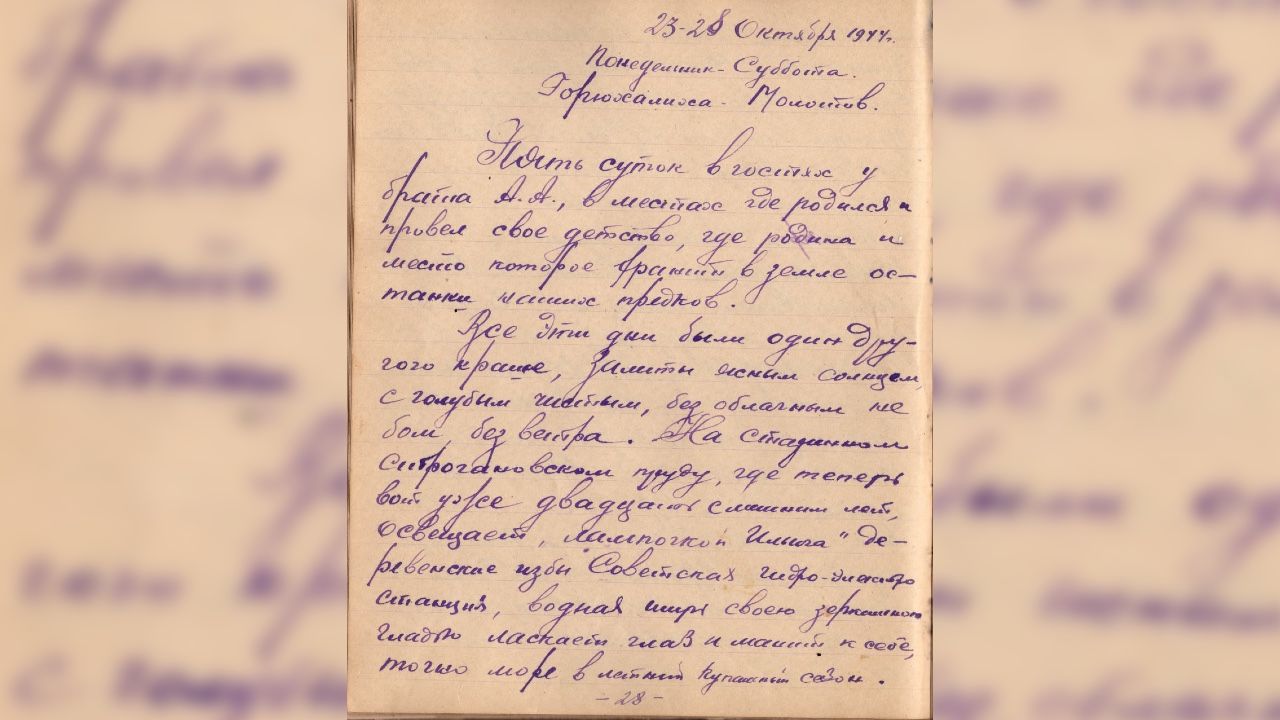 23-28 Октября 1944г.
Понедельник-Суббота.
Горюхалиха - Молотов.
Пять суток в гостях у
брата А.А., в местах где родился и
провел свое детство, где родина и
место которое хранит в земле ос-
танки наших предков.
Все эти дни были один дру-
гого краше, залиты ясным солнцем,
с голубым чистым, без облачным не
бом, без ветра. На стадинном
Строгановском пруду, где теперь
вот уже двадцать слишним лет,
освещает „лампочкой Ильича" де-
ревенские избы Советская гидро-электро
станция, водная ширь своею зеркальною
гладью ласкает глаз и манит к себе,
точно море в летний купальный сезон.
- 28 -